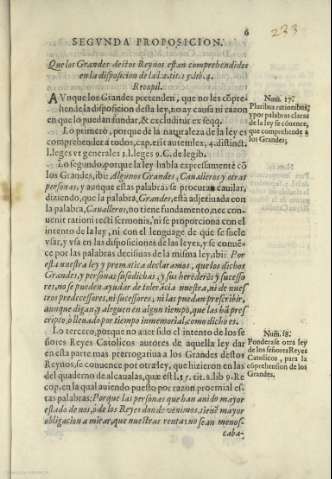 233
6
SEGVNDA PROPOSICION.
Que los Grandes destos Reynos estan comprehendidos
en la disposicion de la l.2.tit.15.lib.4.
Recopil.
AVnque los Grandes pretenden, que no les compre-
hende la disposicion desta ley, no ay causa ni razon
en que lo puedan fundar, & excluditur ex seqq.
Lo primero, porque de la naturaleza de la ley es
comprehender a todos, cap. erit autem lex, 4. distinct.
l. leges et generales 3. l. leges 9. C. de legib.
Lo segundo, porque la ley habla expressamente cõ
los Grandes, ibi: Algunos Grandes, Caualleros y otras
personas, y aunque estas palabras se procuran cauilar,
diziendo, que la palabra, Grandes, està adjetiuada con
la palabra, Caualleros, no tiene fundamento, nec con-
uenit rationi recti sermonis, ni se proporciona con el
intento de la ley, ni con el lenguage de que se suele
vsar, y vsa en las disposiciones de las leyes, y se conuẽ-
ce por las palabras decisiuas de la misma ley, ibi: Por
esta nuestra ley y prematica declaramos, que los dichos
Grandes, y personas susodichas, y sus herederos y sucesso-
res, no se pueden ayudar de tolerãcia nuestra, ni de nues-
tros predecessores, ni sucessores, ni las puedan prescribir,
aunque digan y aleguen en algun tiempo, que las hã pres-
cripto, o llenado por tiempo inmemorial, como dicho es.
Lo tercero, porque no auer sido el intento de los se-
ñores Reyes Catolicos autores de aquella ley dar
en esta parte mas prerrogatiua a los Grandes destos
Reynos, se conuence por otra ley, que hizieron en las
del quaderno de alcaualas, que est l.15. tit. lib 9. Re
cop. en la qual auiendo puesto por razon proemial es-
tas palabras: Porque las personas que han auido mayor
estado de nos, o de los Reyes donde venimos, tienẽ mayor
obligacion a mirar, que nuestras rentas no sean menos-
caba-
Num. 17.
Pluribus rationibus,
y por palabras claras
de la ley se cõuence,
que comprehende a
los Grandes.
Num. 18.
Ponderase otra ley
de los señores Reyes
Catolicos, para la
cõprehension de los
Grandes.